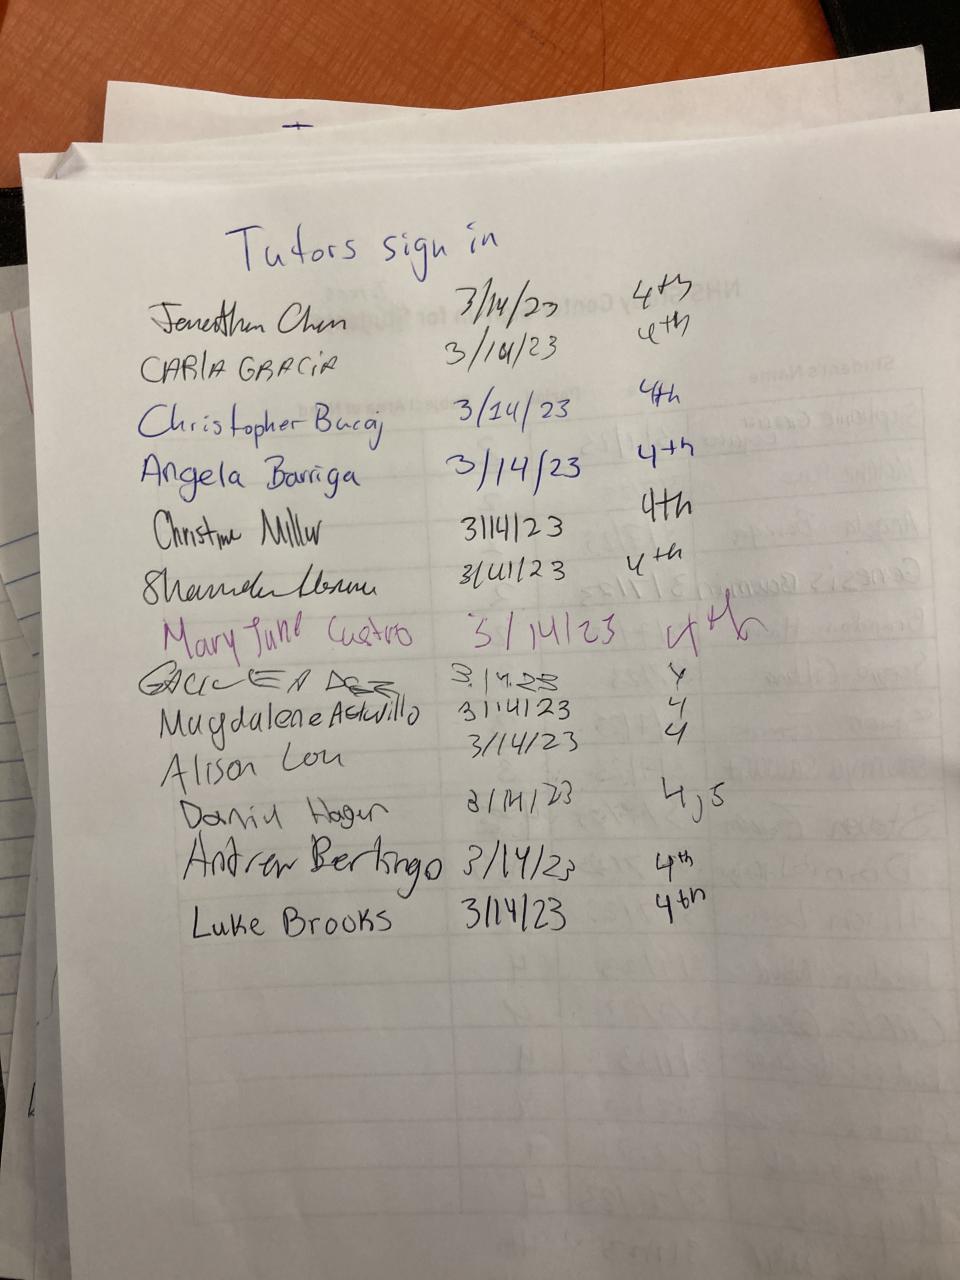 Tutors sign in
Jonathan Chen 3/14/23 4th
CARLA GRACiA 3/14/23 4th
Christopher Bucaj 3/14/23 4th
Angela Barriga 3/14/23 4th
Christine Miller 3/14/23 4th
3/14/23 4th
Mary June Castro 3/14/23 4th
3.14.23 4
Magdalene 3/14/23 4
Alison Lou 3/14/23 4
Daniel Hagen 3/14/23 4,5
Andrew Berlingo 3/14/23 4th
Luke Brooks 3/14/23 4th